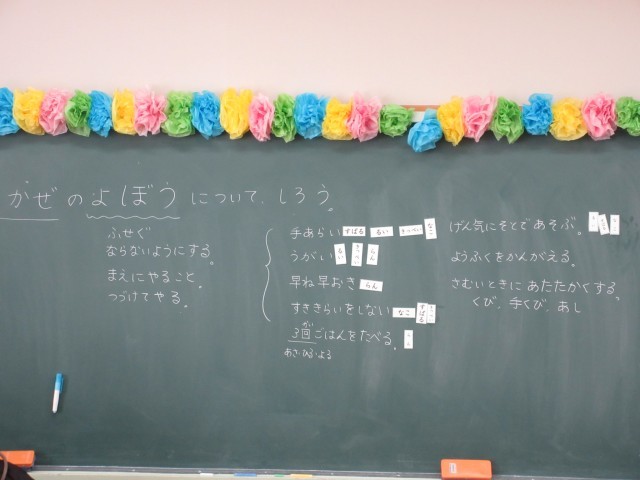 かぜのよぼうについて、しろう。
ふせぐ
ならないようにする。
まえにやること。
つづけてやる。
手あらい すばる るい なこ
うがい るい らん
早ね早おき らん
すききらいをしない なこ すばる
3回ごはんをたべる。
が
あさ・ひる・よる
げん気にそとであそぶ。
ようふくをかんがえる。
さむいときにあたたかくする。
くび、手くび、あし